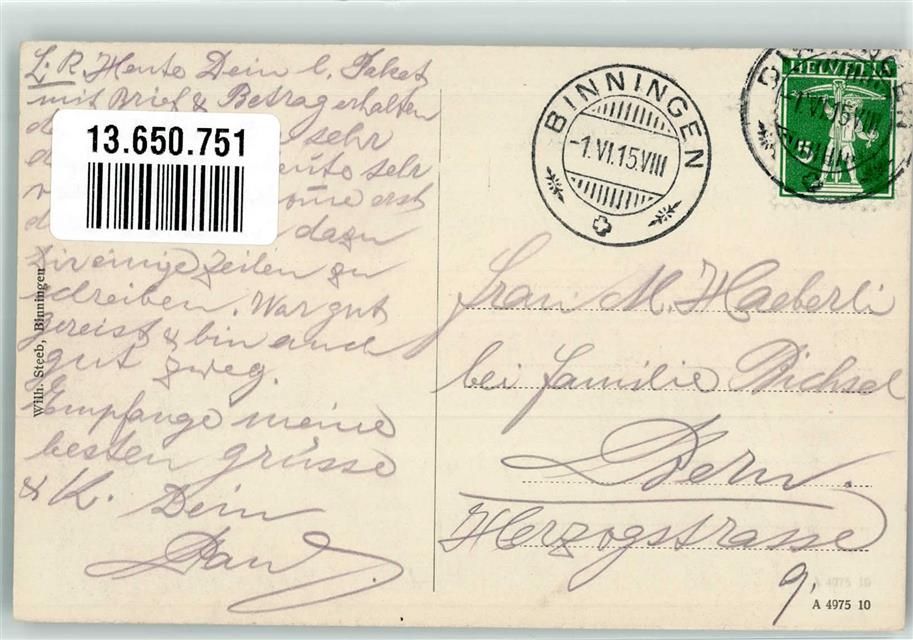 L. R. Heute Dein l. Paket
mit Brief & Betrag erhalten
sehr
sehr
erst
dazu
Dir einige Zeilen zu
schreiben. War gut
gereist & bin auch
gut zweg.
Empfange meine
besten grüsse
& K. Dein
13.650.751
Wilh. Steeb, Binningen
BINNINGEN
-1.VI.15.VIII
HELVETIA
5
Frau M. Haeberli
bei Familie Bichsel
Bern.
Herzogstrasse
9.
A 4975 10